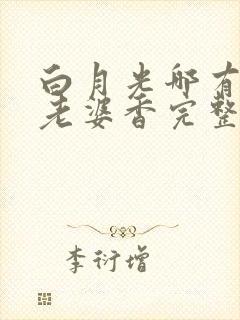 白月光哪有
老婆香完整
李衍增